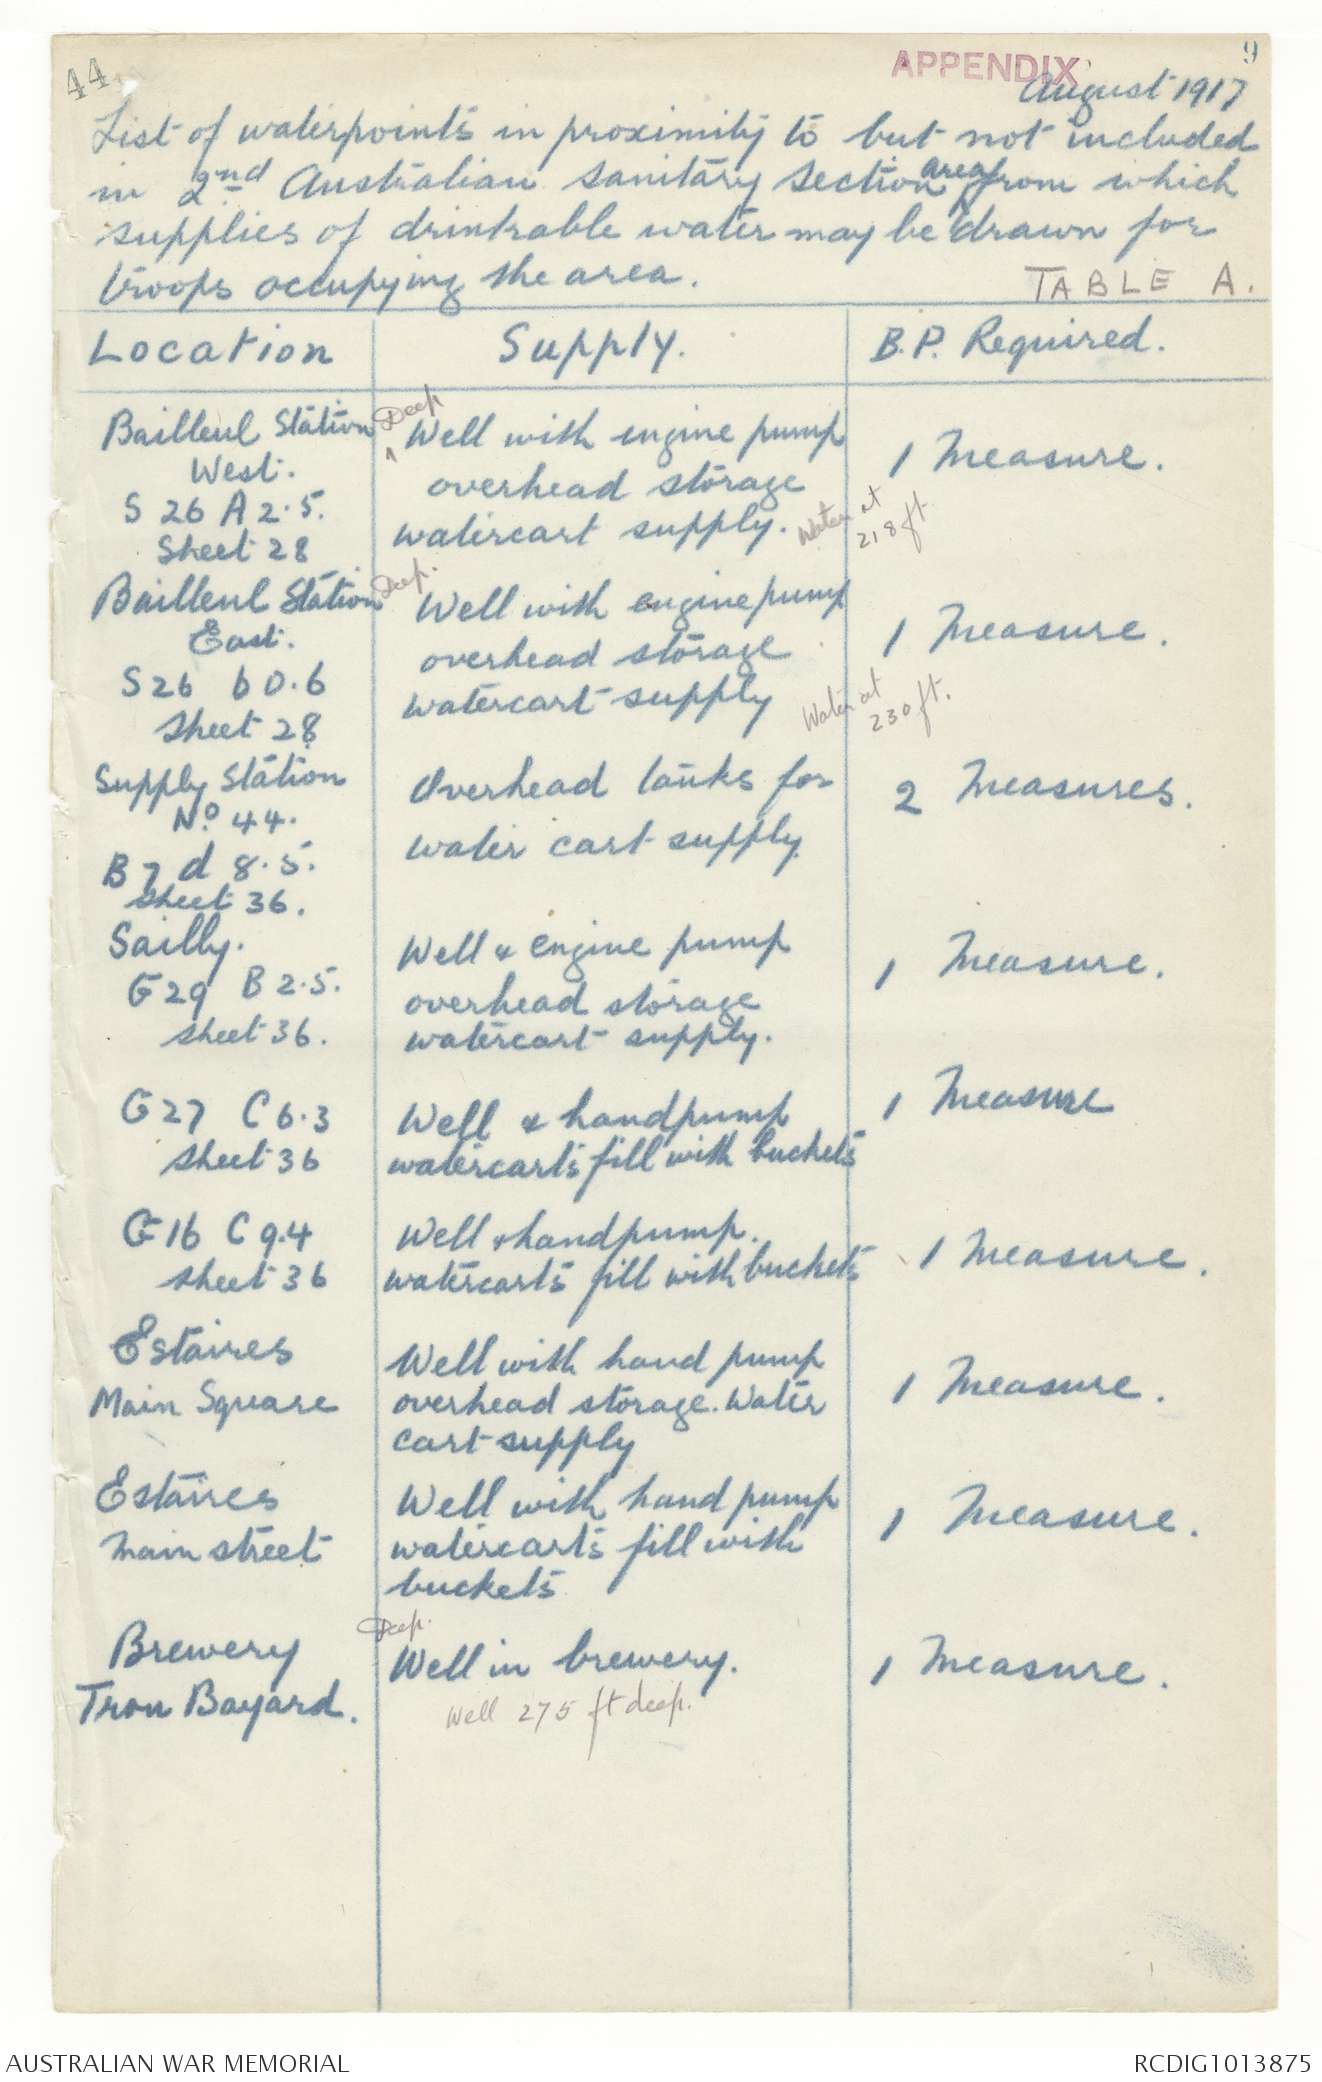 44
APPENDIX
9
August 1917
List of waterpoints in proximity to but not included
in 2nd Australian sanitary section area from which
supplies of drinkable water may be drawn for
troops occupying the area.
TABLE A.
Location Supply. B.P. Required.
Bailleul Station
West.
S 26 A 2.5.
Sheet 28
Deep
Well with engine pump
overhead storage
watercart supply.
Water at
218 ft
1 Measure.
Bailleul Station
East.
S 26 b 0.6
Sheet 28
Deep.
Well with engine pump
overhead storage
watercart supply
Water at
230 ft.
1 Measure.
Supply Station
No. 44.
B 7 d 8.5.
sheet 36.
Overhead tanks for
water cart supply
2 Measures.
Sailly.
G 29 B 2.5.
sheet 36.
Well & engine pump
overhead storage
watercart supply.
1 Measure.
G 27 C 6.3
sheet 36
Well & handpump
watercarts fill with buckets
1 Measure
G 16 C 9.4
sheet 36
Well & handpump.
watercarts fill with buckets
1 Measure.
Estaires
Main Square
Well with hand pump
overhead storage. Water
cart supply
1 Measure.
Estaires
Main street
Well with hand pump
watercarts fill with
buckets
1 Measure.
Brewery
Trou Bayard.
Deep.
Well in brewery.
Well 275 ft deep.
1 Measure.
AUSTRALIAN WAR MEMORIAL
RCDIG1013875